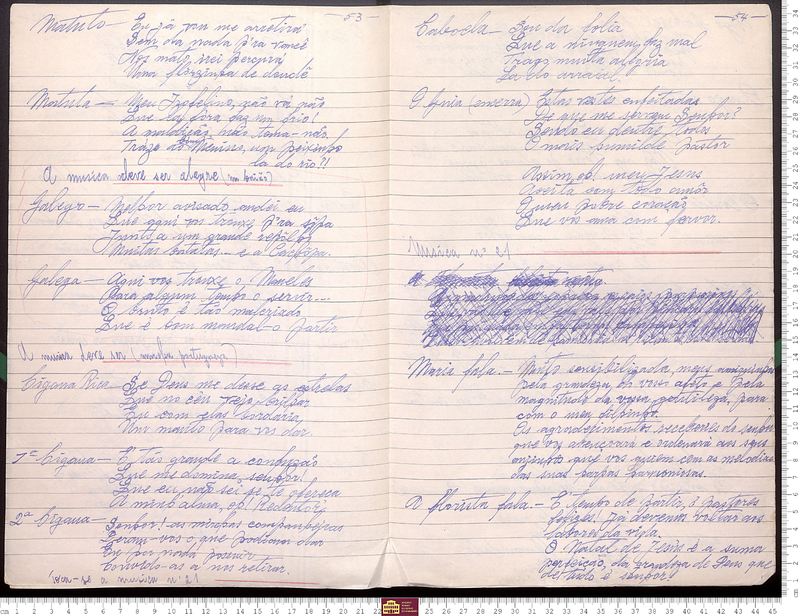 — 53 —
Matuto — Eu já vou me arretirá
Sem da nada p'ra vancê
Nos mato irei percurá
Uma florzinha de
Matuta — Meu não vá não
Que lá fora faz um frio!
A não
Traze do Menino, um peixinho
lá do rio?!
A musica deve ser alegre (um baião)
Galego — Melhor avisado andei eu
Que aqui vos trouxe p'ra sopa
Junto a um grande repolho
Muitas batatas... e a
Galega — Aqui vos trouxe o Maneles
Para algum tempo o servir...
O bruto é tão malcriado
Que é bom mandal-o partir
A musica deve ser (musica portugueza)
Cigana Rica — Se Deus me desse as estrelas
Que no céu vejo brilhar
Eu com elas bordaria
Um manto para vos dar
1ª Cigana — É tão grande a
Que me domina, senhor!
Que eu não sei se te ofereça
A minh'alma, oh! Redentor
2ª Cigana — Senhor! as minhas companheiras
Deram-vos o que podiam dar
Eu por nada possuir
Convido-as a nos retirar.
a musica nº 21
— 54 —
Cabocla — Sou da folia
Que a ninguem faz mal
Trago muita alegria
Lá do arraial.
O Guia (encerra) Estas vestes enfeitadas
De que me servem Senhor?
Sendo eu dentre todos
O mais humilde pastor
Assim, oh! meu Jesus
Aceita com todo amôr
O meu pobre coração
Que vos ama com fervor.
Musica nº 21
Maria fala. — Muito sensibilizada, meus
pela grandeza do vosso afeto e pela
magnitude da vossa gentileza, para
com o meu filhinho.
Os agradecimentos recebereis do senhor
que vos abençoará e ordenará aos seus
anjinhos que vos guiem com as melodias
das suas harpas harmoniosas.
A florista fala. — É tempo de partir, ó pastores
felizes. Já devemos voltar aos
labores da vida.
O Natal de Jesus é a suma
perfeição, da grandeza de Deus que
de tudo é senhor!